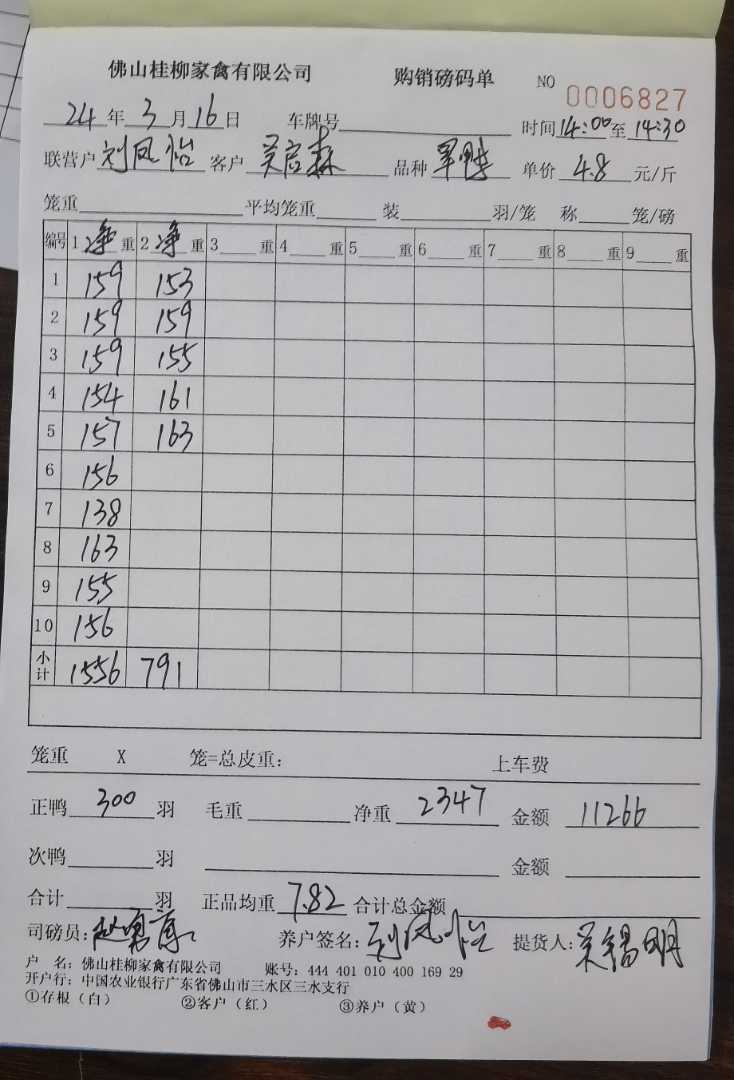 佛山桂柳家禽有限公司 购销磅码单 NO 0006827
24年3月16日 车牌号 时间14:00至14:30
联营户 刘凤怡 客户 吴启森 品种 单价 4.8 元/斤
笼重 平均笼重 装 羽/笼 称 笼/磅
编号 1净重 2净重 3 重 4 重 5 重 6 重 7 重 8 重 9 重
1 159 153
2 159 159
3 159 155
4 154 161
5 157 163
6 156
7 138
8 163
9 155
10 156
小计 1556 791
笼重 X 笼=总皮重: 上车费
正鸭 300 羽 毛重 净重 2347 金额 11266
次鸭 羽 金额
合计 羽 正品均重 7.82 合计总金额
司磅员: 养户签名: 刘凤怡 提货人: 吴锡明
户 名: 佛山桂柳家禽有限公司 账号: 444 401 010 400 169 29
开户行: 中国农业银行广东省佛山市三水区三水支行
①存根(白) ②客户(红) ③养户(黄)